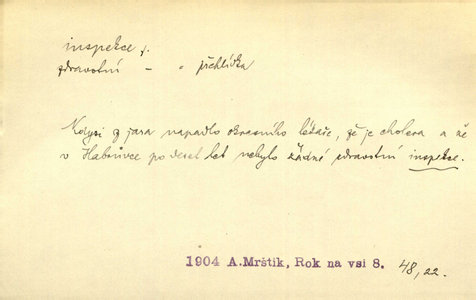 inspekce f.
zdravotní – „ přehlídka
Kdysi z jara napadlo okresního lékaře, že je cholera a že
v Habrůvce po deset let nebylo žádné zdravotní inspekce.
1904 A.Mrštík, Rok na vsi 8. 48, 22.